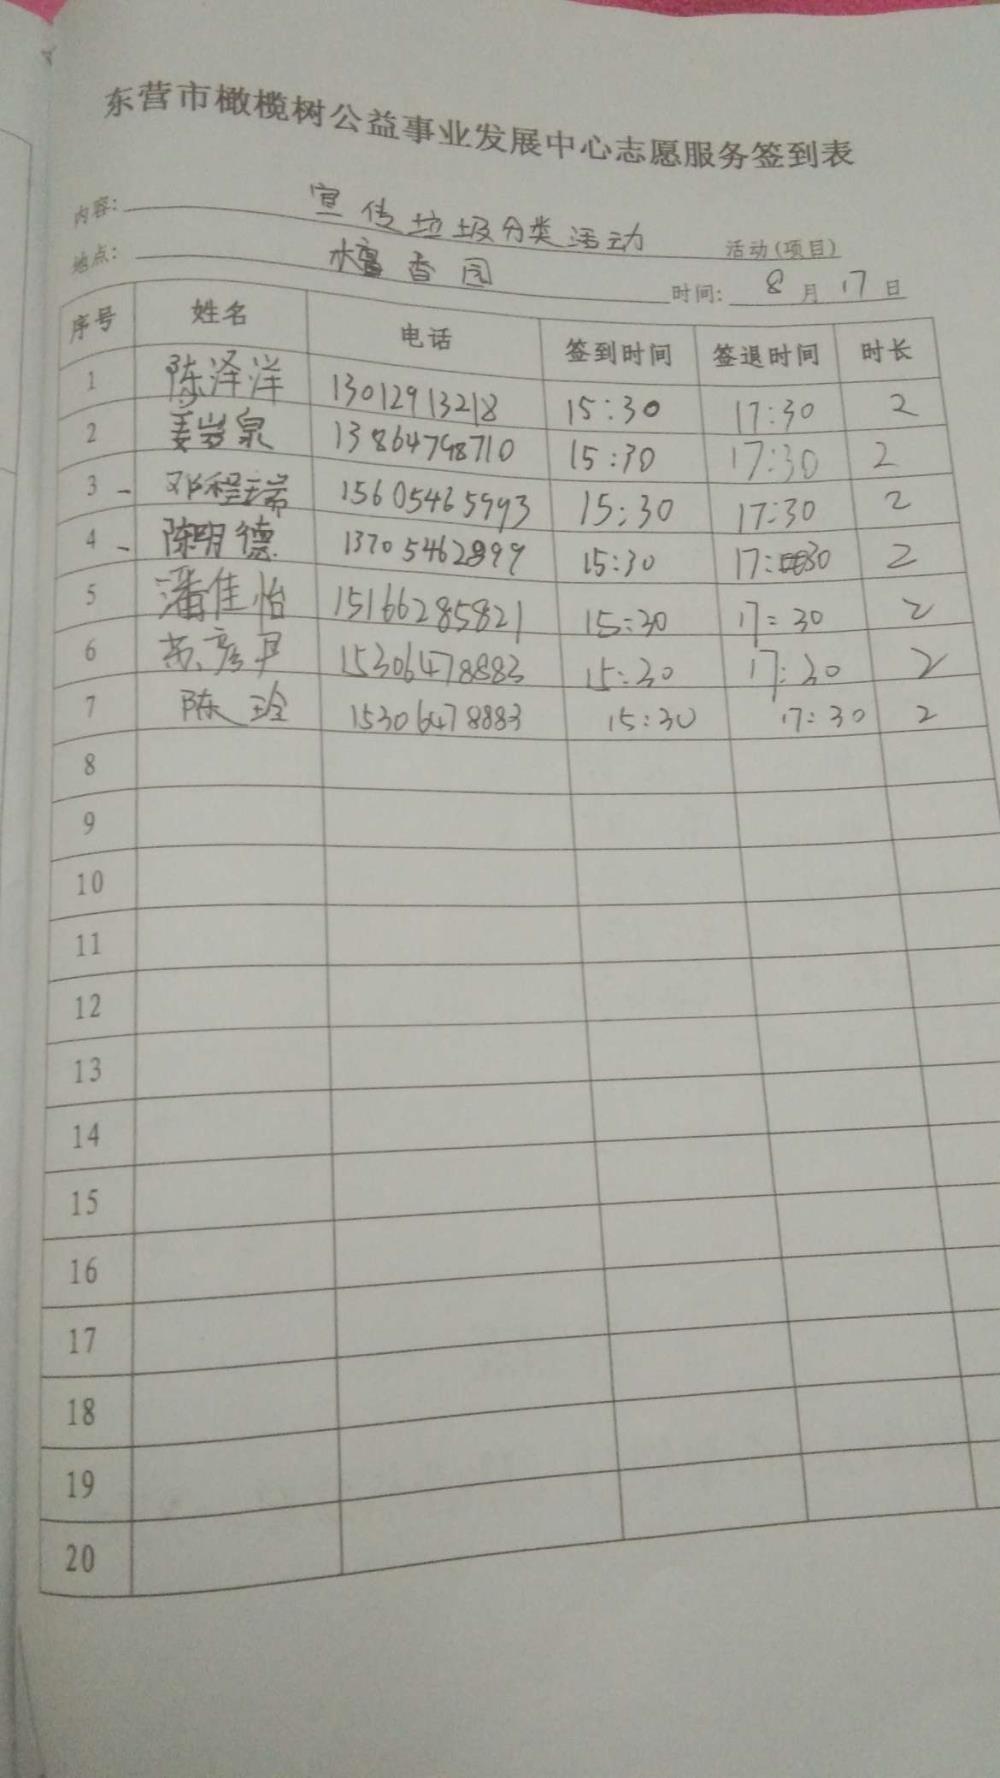 东营市橄榄树公益事业发展中心志愿服务签到表
内容: 宣传垃圾分类活动 活动(项目)
地点: 檀香园 时间: 8月17日
序号 姓名 电话 签到时间 签退时间 时长
1 陈泽洋 13012913218 15:30 17:30 2
2 姜岁泉 13864798710 15:30 17:30 2
3 - 邓程瑞 15605465993 15:30 17:30 2
4 - 陈明德 13705462899 15:30 17:30 2
5 潘佳怡 15166285821 15:30 17:30 2
6 苏彦丹 15306478883 15:30 17:30 2
7 陈玲 15306478883 15:30 17:30 2
8
9
10
11
12
13
14
15
16
17
18
19
20